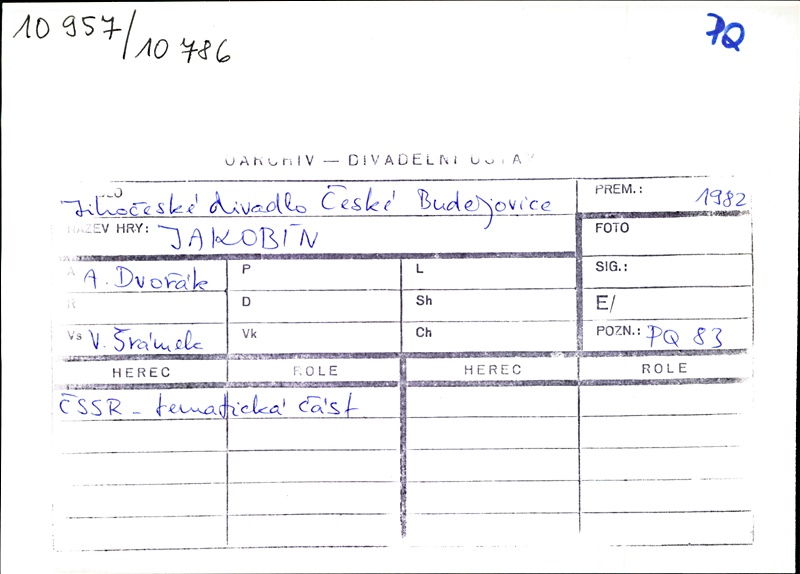 10 957/10 786
PQ
DIVADELNÍ
Jihočeské divadlo České Budějovice
PREM.: 1982
NÁZEV HRY: JAKOBÍN
FOTO
A A. Dvořák P L SIG.:
R D Sh E/
Vs V. Šrámek Vk Ch POZN.: PQ 83
HEREC ROLE HEREC ROLE
ČSSR - tematická část